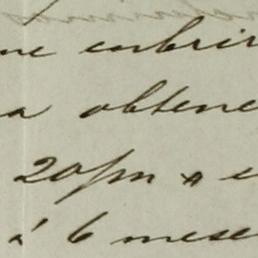 me cubrir
a obtene
20 fm e
á 6 mese